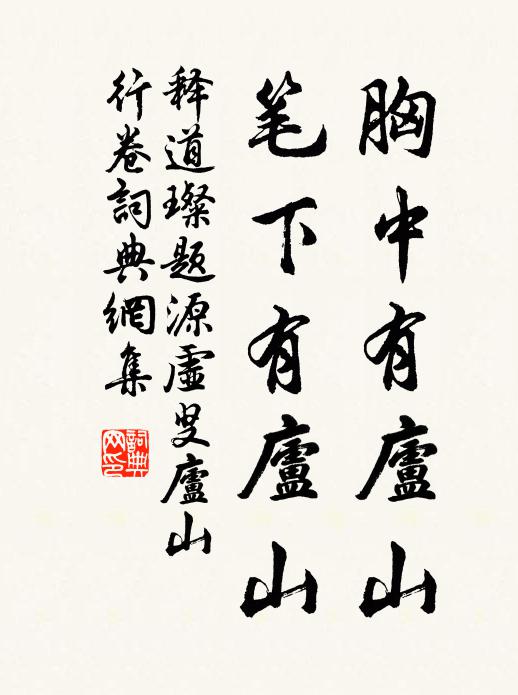 胸中有廬山
笔下有廬山
释道璨題源虛叟廬山
行卷詞典網集
詞典网印